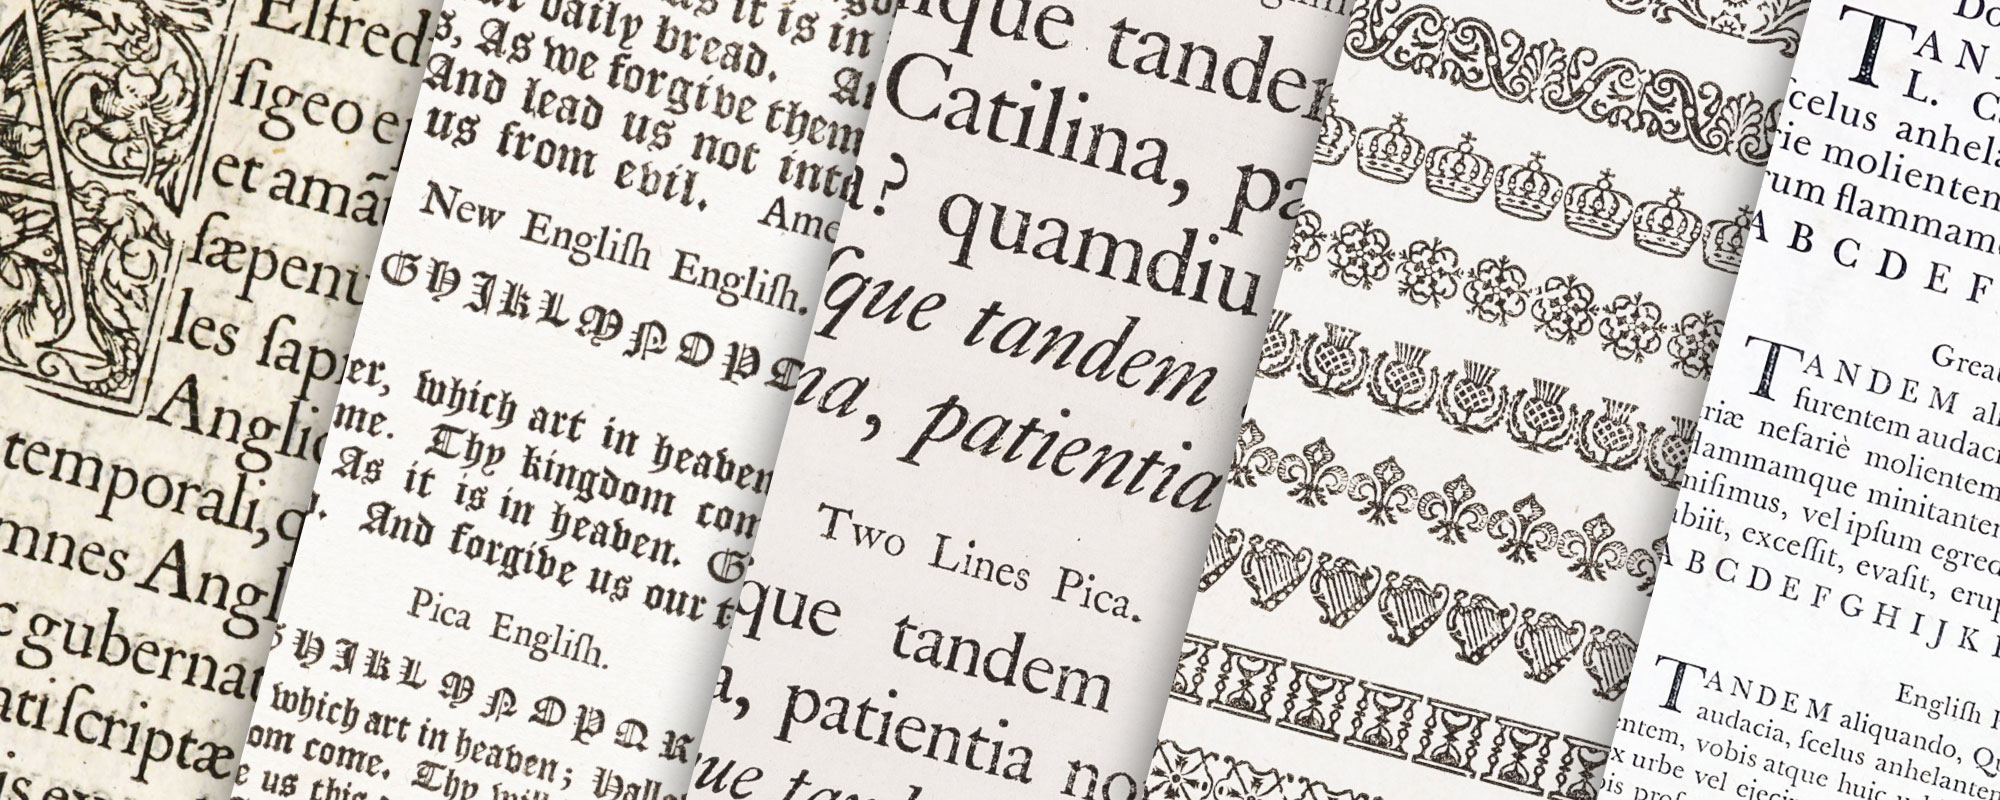 Elfred
sigeo
et amã
sæpenu
les sap
Anglic
temporali,
mnes Angl
gubernat
ati scriptæ
it is in
daily bread.
s, As we forgive them
And lead us not into
us from evil. Ame
New Engliſh Engliſh.
G H I K L M N O P
er, which art in heaven
me. Thy kingdom com
As it is in heaven. G
And forgive us our t
Pica Engliſh.
G H I K L M N O P Q R
which art in heaven; Hallo
om come. Thy will
e us this
que tandem
Catilina, pa
a? quamdiu
ſque tandem
na, patientia
Two Lines Pica.
que tandem
a, patientia no
que
Do
TAN
L. C
ſcelus anhela
rie molienten
rum flammam
A B C D E F
Great
TANDEM ali
furentem audaci
riæ nefariè molientem
lammamque minitanter
miſimus, vel ipſum egred
abiit, exceſſit, evaſit, erup
A B C D E F G H I J K
Engliſh
TANDEM aliquando, Qu
audacia, ſcelus anhelanten
entem, vobis atque huic
x urbe vel ejeci